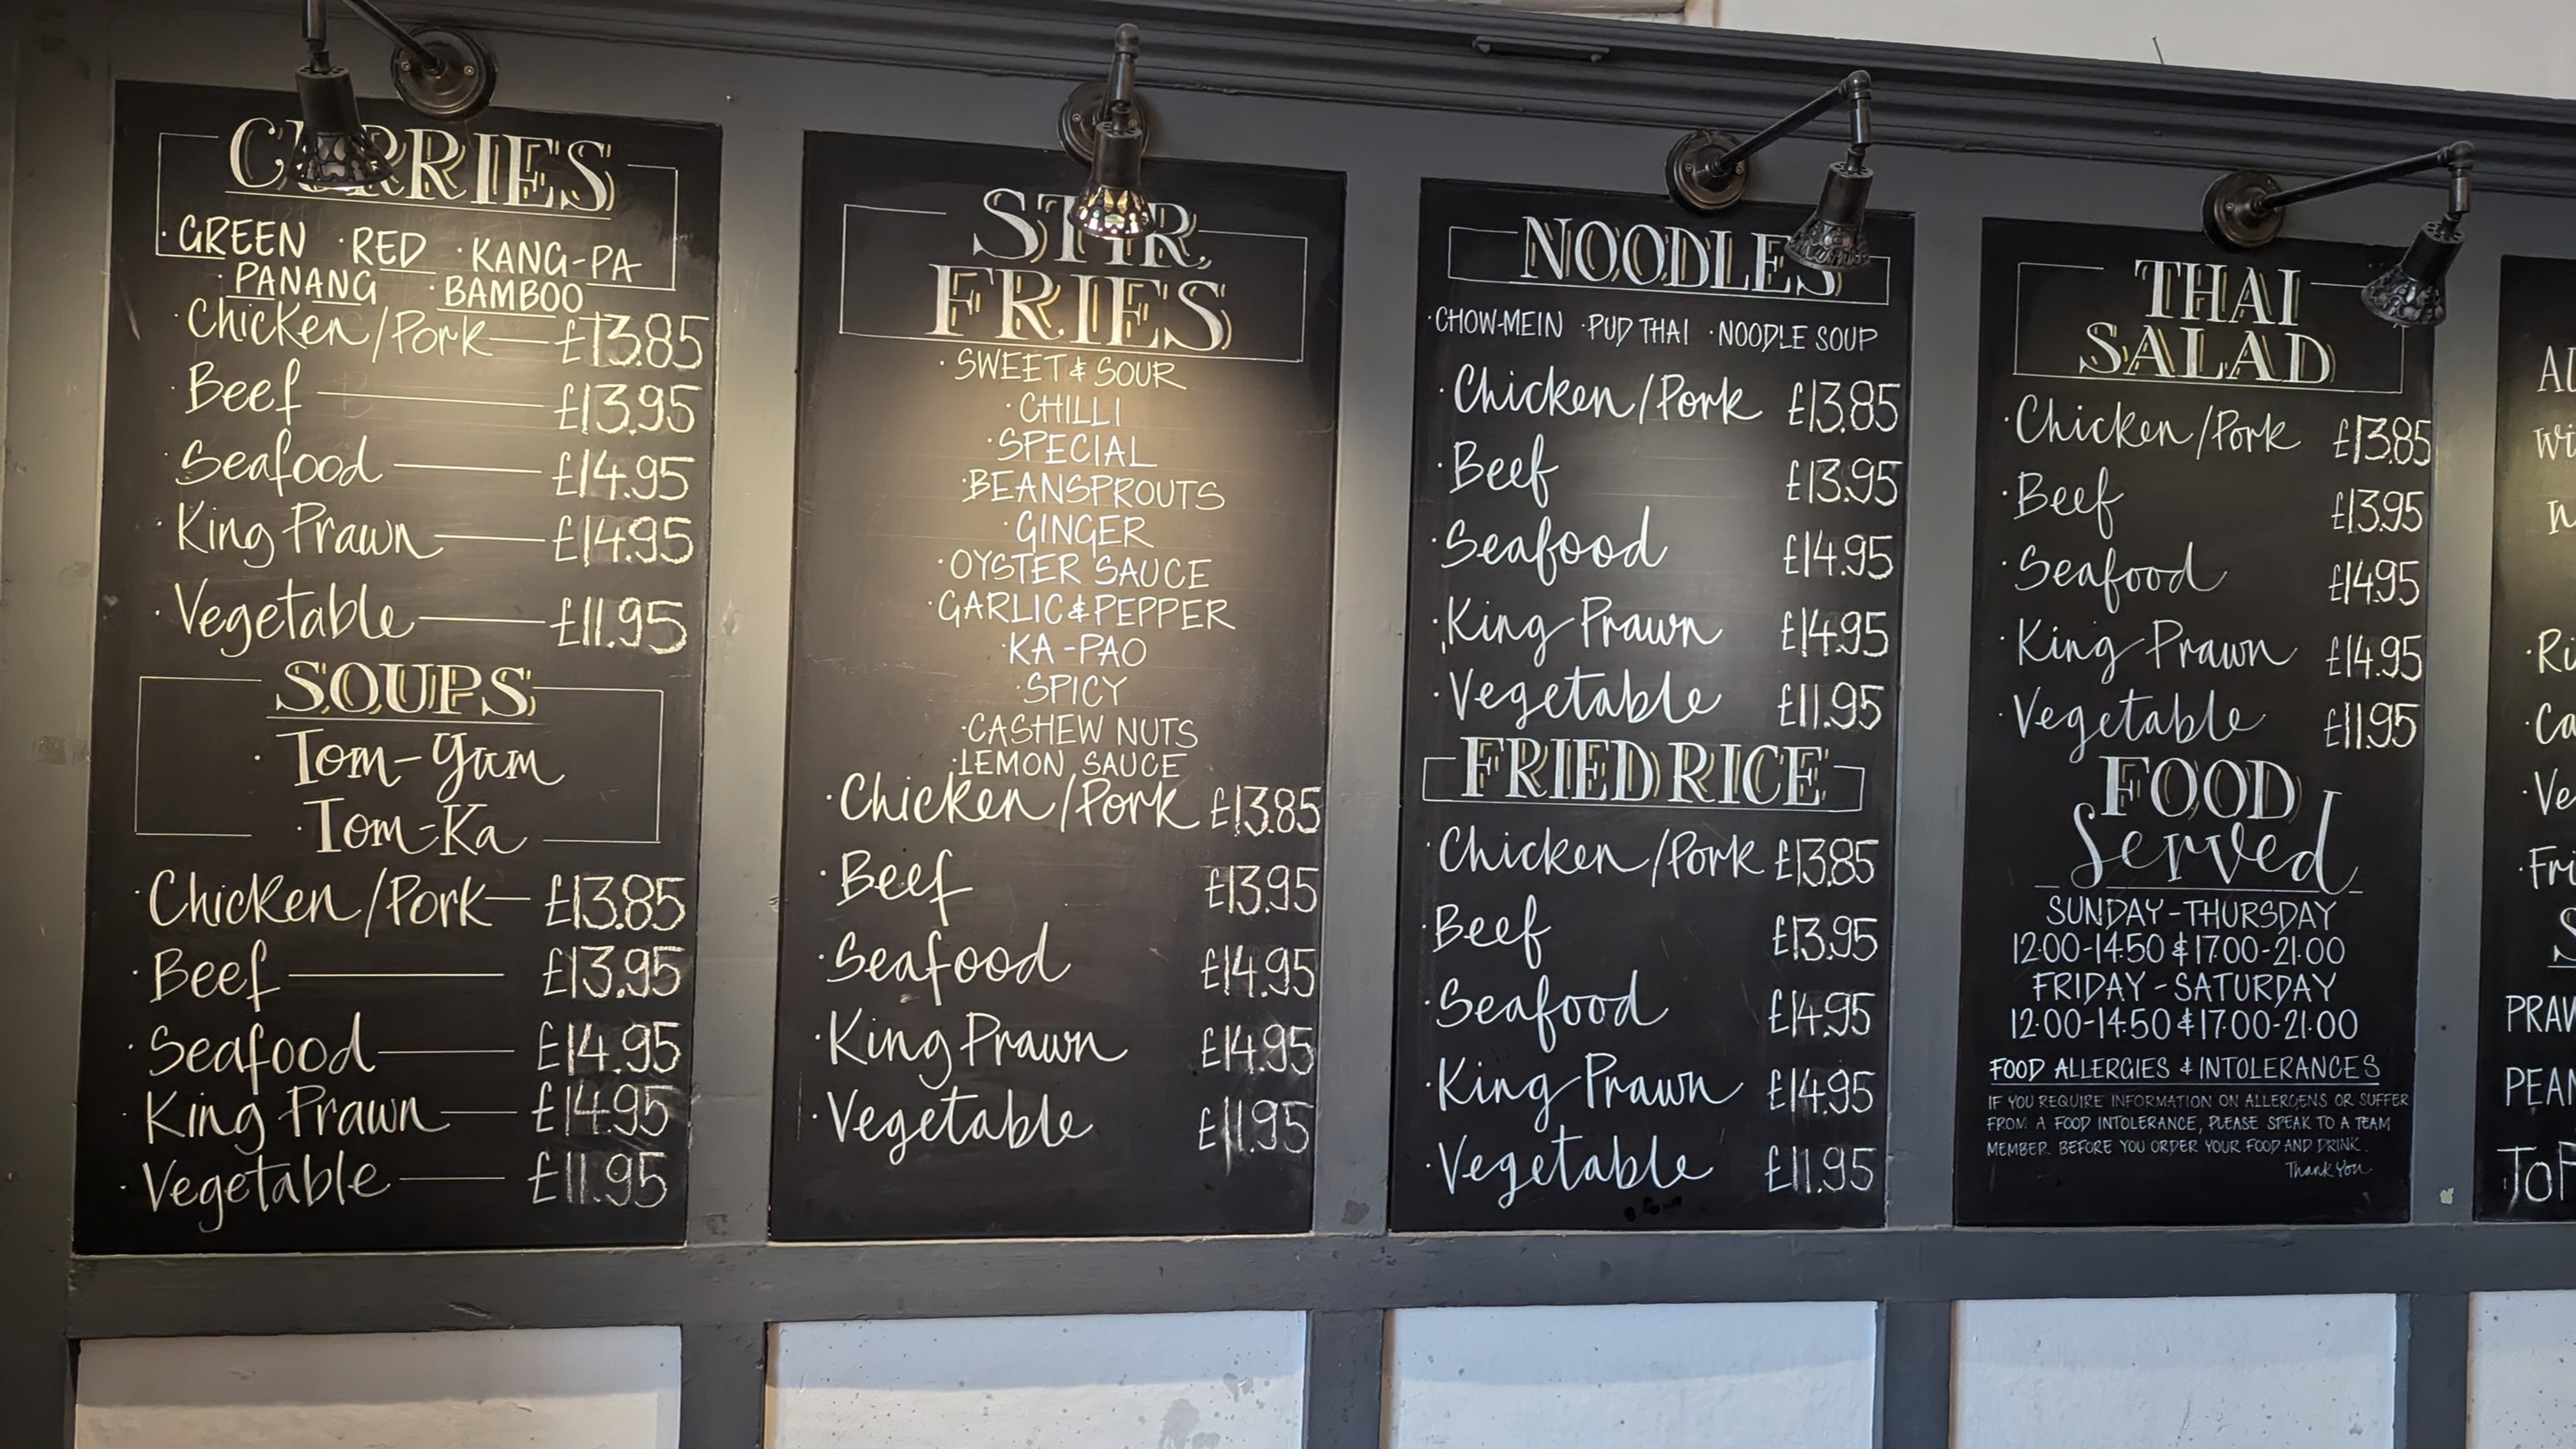 CURRIES
·GREEN ·RED ·KANG-PA
·PANANG ·BAMBOO
·Chicken/Pork £13.85
·Beef £13.95
·Seafood £14.95
·King Prawn £14.95
·Vegetable £11.95
SOUPS
·Tom-Yum
·Tom-Ka
·Chicken/Pork £13.85
·Beef £13.95
·Seafood £14.95
·King Prawn £14.95
·Vegetable £11.95
STIR
FRIES
·SWEET & SOUR
·CHILLI
·SPECIAL
·BEANSPROUTS
·GINGER
·OYSTER SAUCE
·GARLIC & PEPPER
·KA-PAO
·SPICY
·CASHEW NUTS
·LEMON SAUCE
·Chicken/Pork £13.85
·Beef £13.95
·Seafood £14.95
·King Prawn £14.95
·Vegetable £11.95
NOODLES
·CHOW-MEIN ·PUD THAI ·NOODLE SOUP
·Chicken/Pork £13.85
·Beef £13.95
·Seafood £14.95
·King Prawn £14.95
·Vegetable £11.95
FRIED RICE
·Chicken/Pork £13.85
·Beef £13.95
·Seafood £14.95
·King Prawn £14.95
·Vegetable £11.95
THAI
SALAD
·Chicken/Pork £13.85
·Beef £13.95
·Seafood £14.95
·King Prawn £14.95
·Vegetable £11.95
FOOD
Served
SUNDAY-THURSDAY
12:00-14:50 & 17:00-21:00
FRIDAY-SATURDAY
12:00-14:50 & 17:00-21:00
FOOD ALLERGIES & INTOLERANCES
IF YOU REQUIRE INFORMATION ON ALLERGENS OR SUFFER
FROM A FOOD INTOLERANCE, PLEASE SPEAK TO A TEAM
MEMBER BEFORE YOU ORDER YOUR FOOD AND DRINK.
Thank You